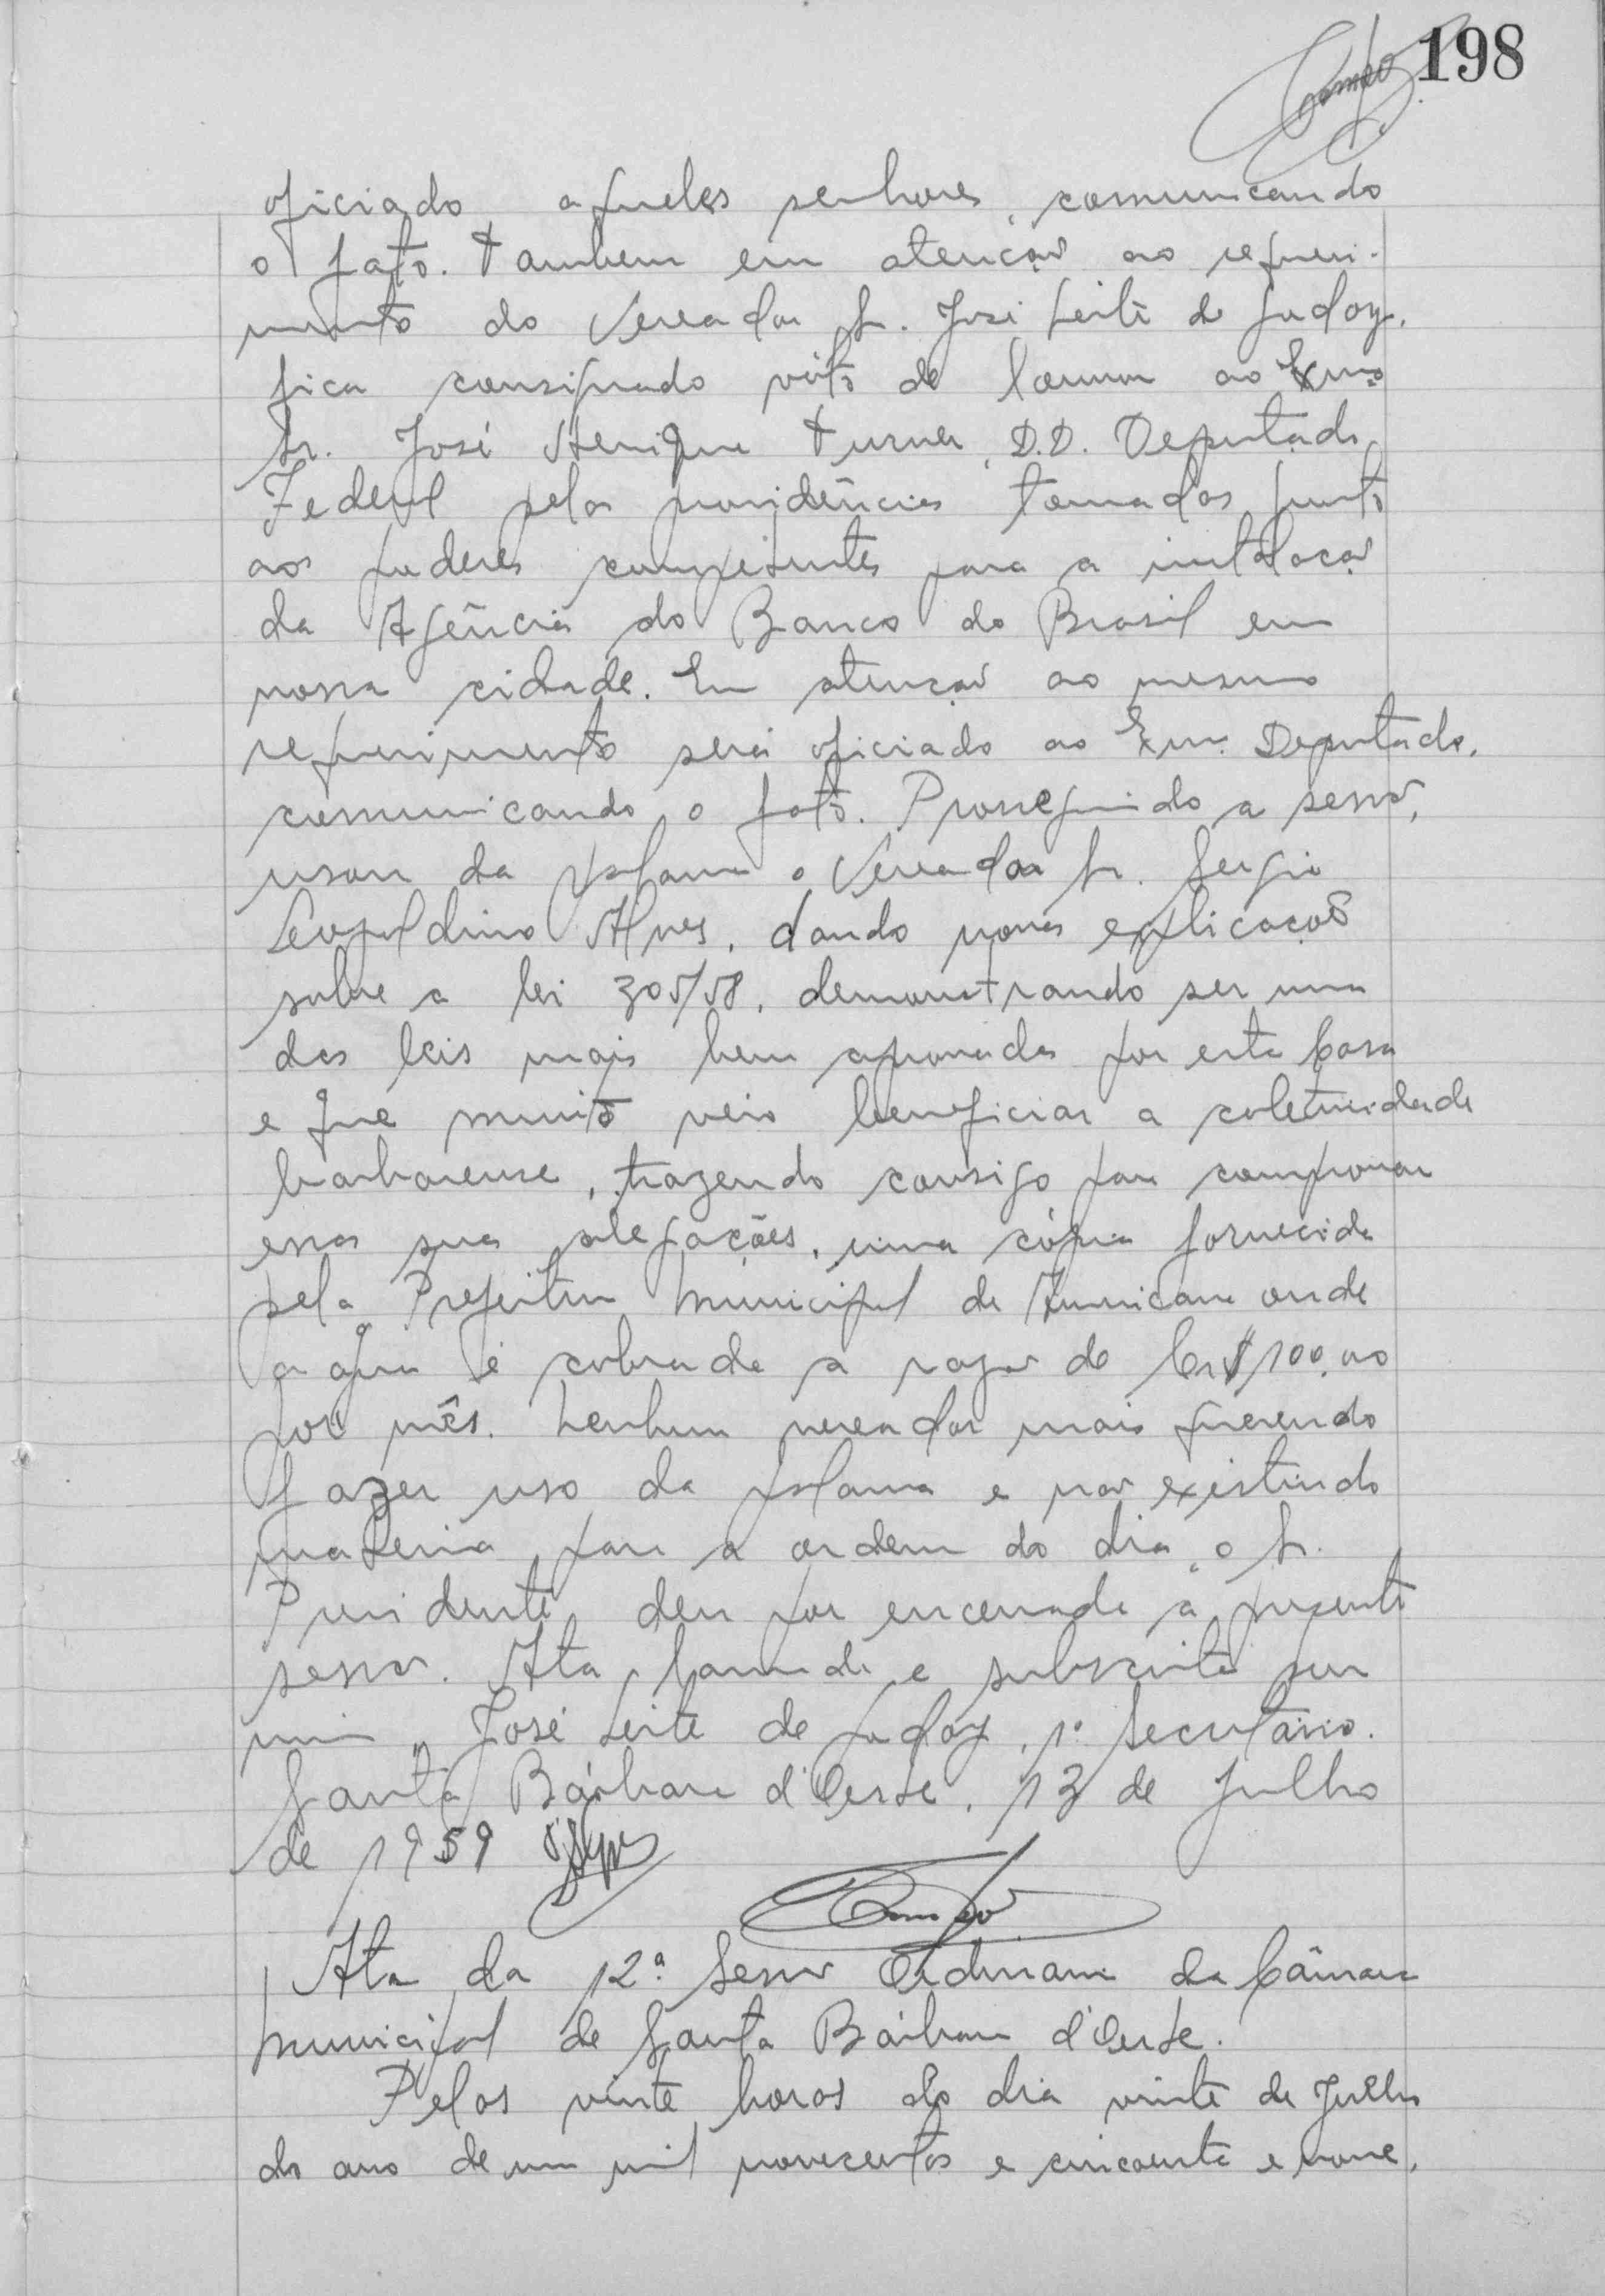 198
oficiado aqueles senhores, comunicando
o fato. Tambem em atenção ao requeri-
mento do Vereador Sr. José Leite de Godoy,
fica consignado voto de louvor ao Exmo
Sr. José Henrique Turner, D.D. Deputado
Federal pelas providências tomadas junto
aos poderes competentes para a instalação
da Agência do Banco do Brasil em
nossa cidade. Em atenção ao mesmo
requerimento será oficiado ao Exmo. Deputado,
comunicando o fato. Prosseguindo a sessão,
usou da palavra o Vereador Sr. Sergio
Leopoldino Alves, dando novas explicações
sobre a lei 305/58, demonstrando ser uma
das leis mais bem aprovadas por esta Casa
e que muito veio beneficiar a coletividade
barbarense, trazendo consigo para comprovar
essas suas alegações, uma cópia fornecida
pela Prefeitura Municipal de Americana onde
a agua é cobrada a razão de Cr$ 100,00
por mês. Nenhum vereador mais querendo
fazer uso da palavra e não existindo
materia para a ordem do dia, o Sr.
Presidente, deu por encerrada a presente
sessão. Ata lavrada e subscrita por
mim, José Leite de Godoy, 1º Secretário.
Santa Bárbara d'Oeste, 13 de Julho
de 1959
Ata da 12ª Sessão Ordinaria da Câmara
Municipal de Santa Bárbara d'Oeste.
Pelas vinte horas do dia vinte de Julho
do ano de um mil novecentos e cincoenta e nove,